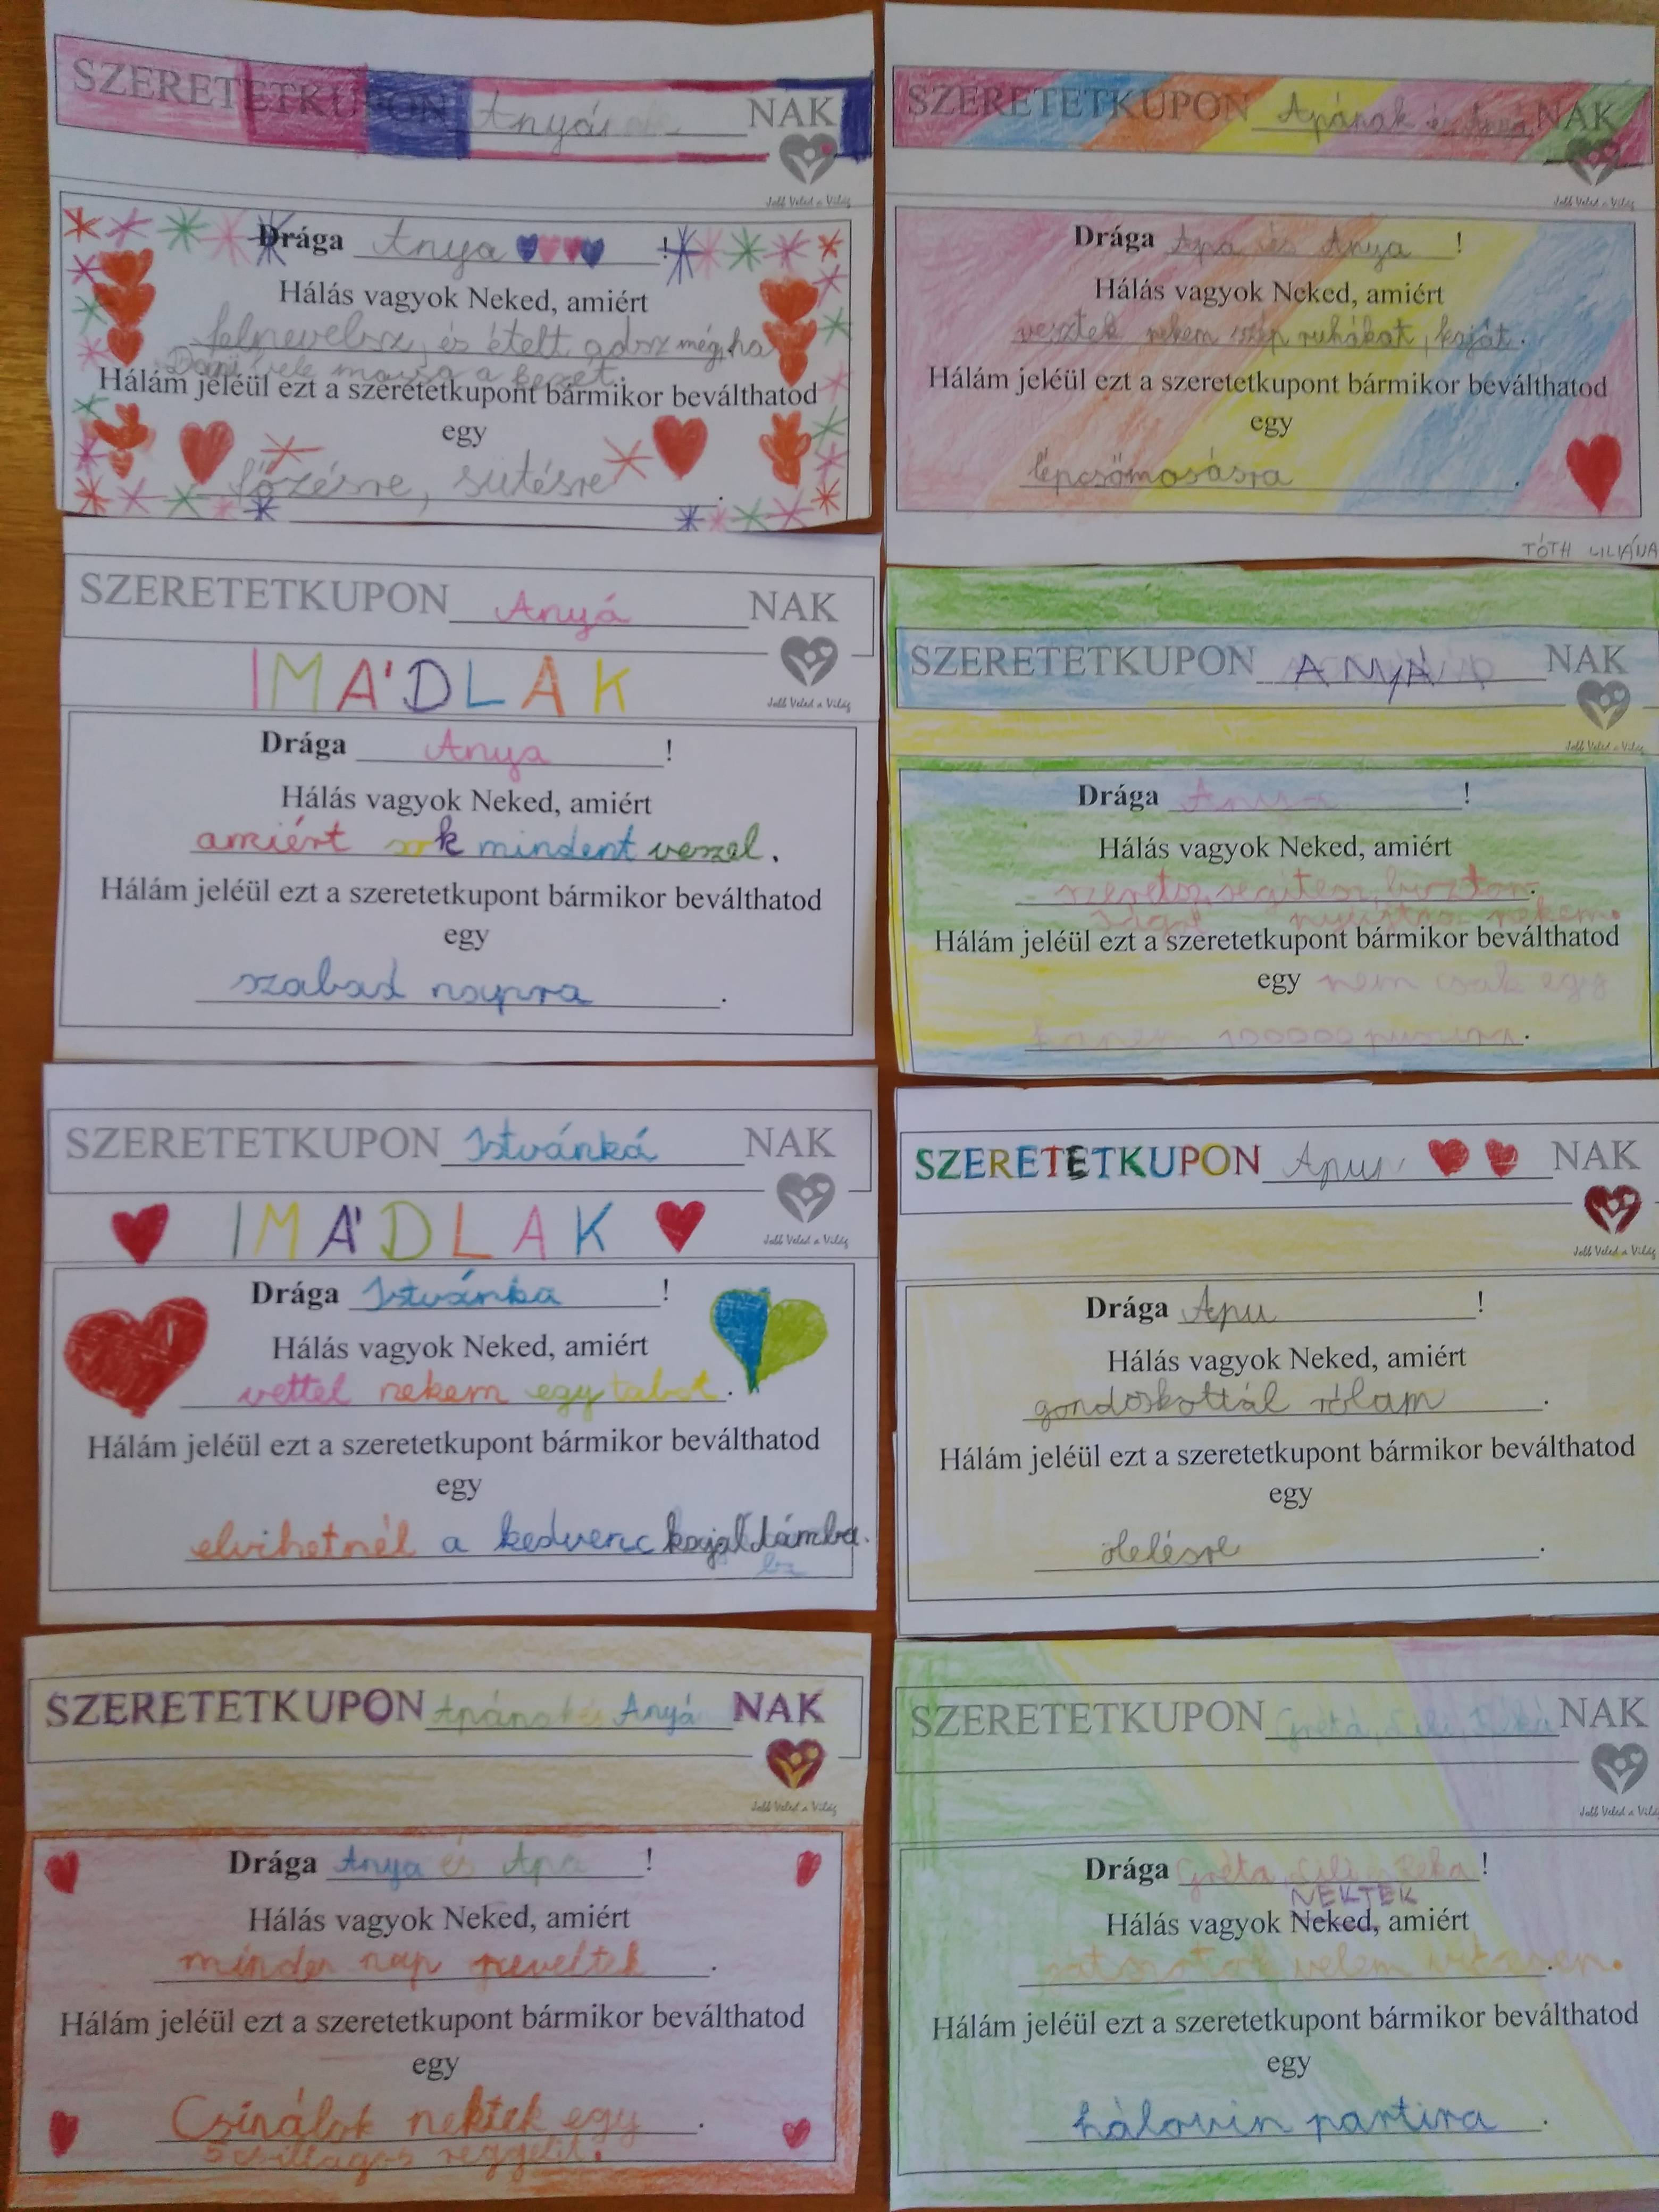 SZERETETKUPON Anyá NAK
Jobb Veled a Világ
Drága Anya !
Hálás vagyok Neked, amiért
felnevelsz, és ételt adsz még, ha
a kezet.
Hálám jeléül ezt a szeretetkupont bármikor beválthatod
egy
főzésre, sütésre .
SZERETETKUPON Apának és Anyá NAK
Jobb Veled a Világ
Drága Apa és Anya !
Hálás vagyok Neked, amiért
vesztek nekem szép ruhákat, kaját .
Hálám jeléül ezt a szeretetkupont bármikor beválthatod
egy
lépcsőmosásra .
TÓTH LILIÁNA
SZERETETKUPON Anyá NAK
IMÁDLAK
Jobb Veled a Világ
Drága Anya !
Hálás vagyok Neked, amiért
amiért sok mindent veszel .
Hálám jeléül ezt a szeretetkupont bármikor beválthatod
egy
szabad napra .
SZERETETKUPON ANYÁ NAK
Jobb Veled a Világ
Drága Anya !
Hálás vagyok Neked, amiért
szeretsz, segítesz, bizton .
ságot nyújtasz nekem.
Hálám jeléül ezt a szeretetkupont bármikor beválthatod
egy nem csak egy
hanem 100000 puszira .
SZERETETKUPON Istvánká NAK
IMÁDLAK
Jobb Veled a Világ
Drága Istvánka !
Hálás vagyok Neked, amiért
vettél nekem egy tabot .
Hálám jeléül ezt a szeretetkupont bármikor beválthatod
egy
elvihetnél a kedvenc kajáldámba.
SZERETETKUPON Apu NAK
Jobb Veled a Világ
Drága Apu !
Hálás vagyok Neked, amiért
gondoskottál rólam .
Hálám jeléül ezt a szeretetkupont bármikor beválthatod
egy
ölelésre .
SZERETETKUPON Apának és Anyá NAK
Jobb Veled a Világ
Drága Anya és Apa !
Hálás vagyok Neked, amiért
minden nap neveltek .
Hálám jeléül ezt a szeretetkupont bármikor beválthatod
egy
Csinálok nektek egy .
5 csillagos reggelit.
SZERETETKUPON Gréta, Lili, Réká NAK
Jobb Veled a Világ
Drága Gréta, Lili, Réka !
NEKTEK
Hálás vagyok Neked, amiért
velem .
Hálám jeléül ezt a szeretetkupont bármikor beválthatod
egy
hálovin partira .